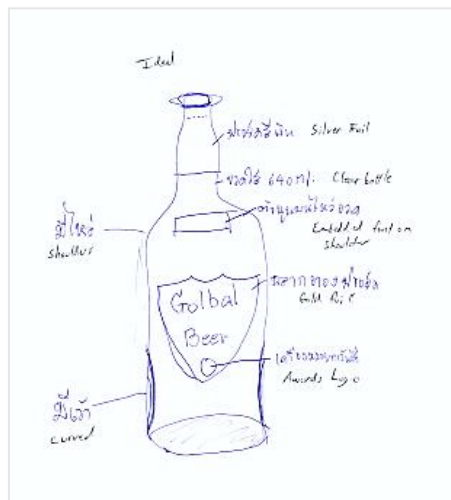 Ideal
ฟรอยด์สีเงิน Silver Foil
ขวดใส 640ml. Clear bottle
ตัวนูนบนไหล่ขวด
Embedded font on
shoulder
มีไหล่
shoulders
ฉลากทองฟรอยด์
Gold Foil
Golbal
Beer
เครื่องหมายการันตี
Awards Logo
มีเว้า
curved